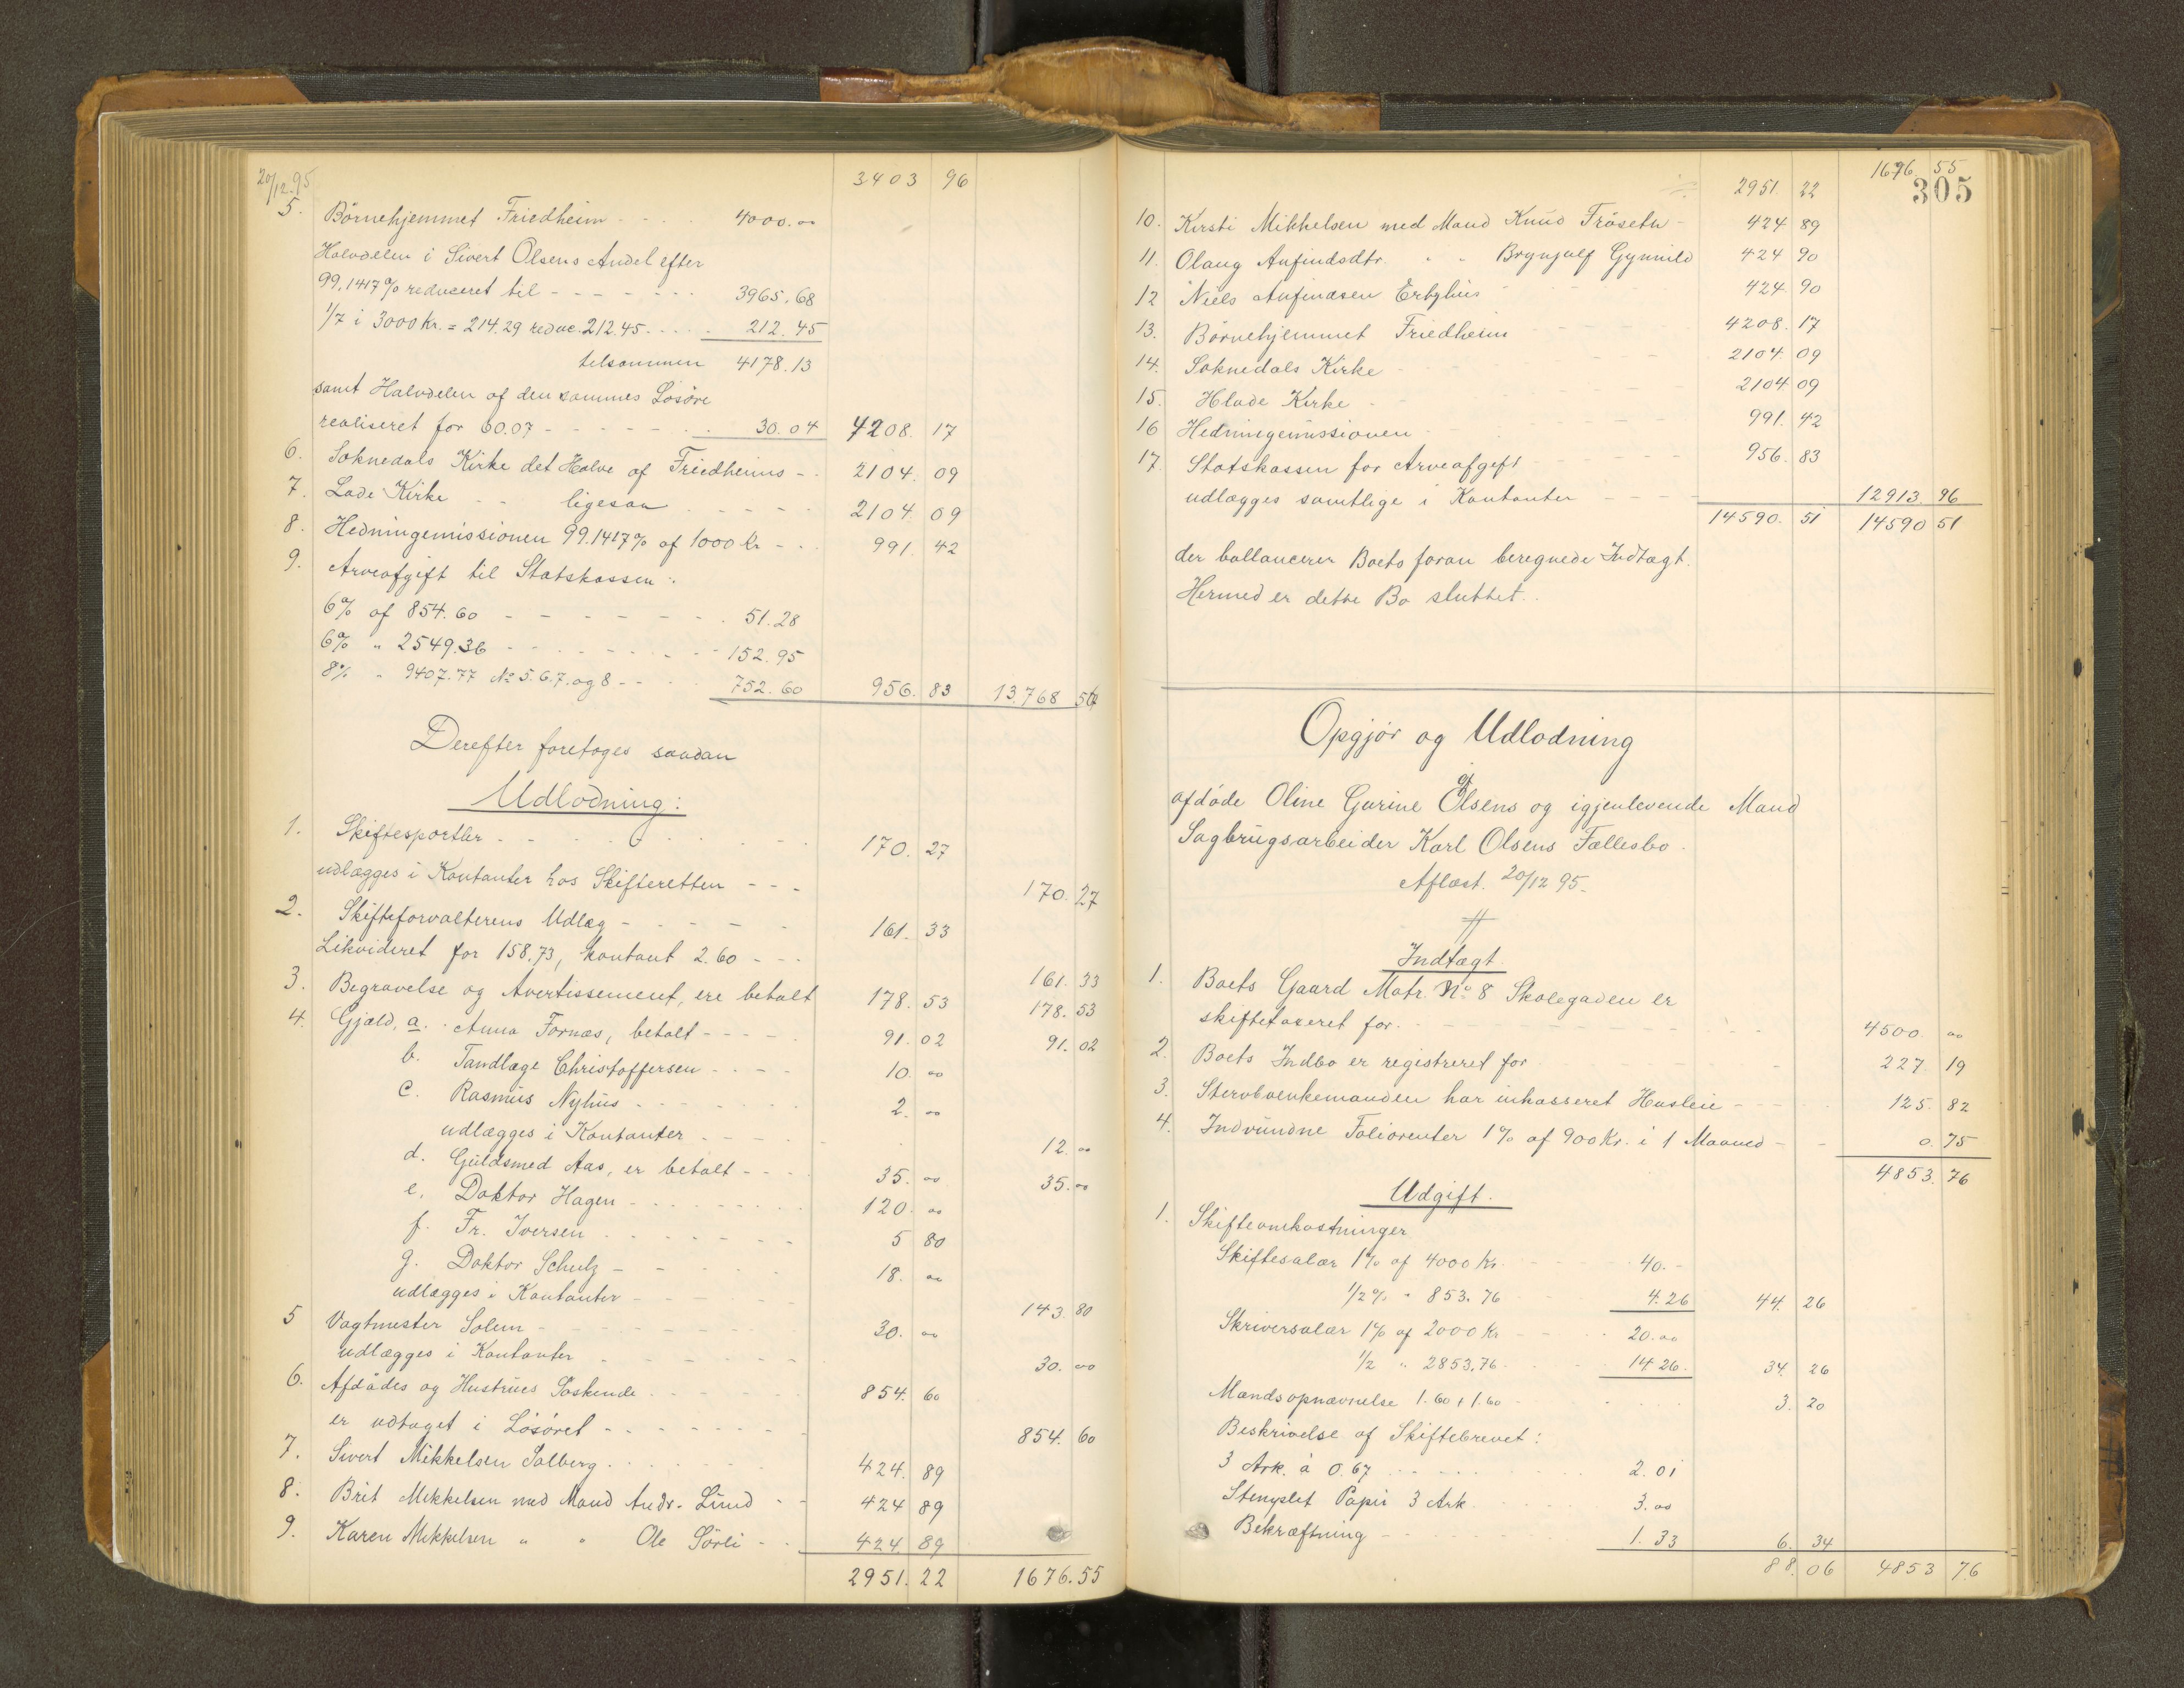 20/12.95
3403 96
5. Börnehjemmet Friedheim - - - - 4000.00
Halvdelen i Sivert Olsens Andel efter
99,1417% reduceret til - - - - - - - 3965,68
1/7 i 3000 Kr. = 214.29 reduc. 212.45 - - - - 212.45
tilsammen 4178.13
samt Halvdelen af den sammes Lösöre
realiseret for 60.07 - - - - - - 30.04 4208. 17
6. Soknedals Kirke det Halve af Friedheims - - 2104. 09
7. Lade Kirke - - ligesaa - - - - - 2104. 09
8. Hedningemissionen 99.1417% af 1000 Kr - - - 991. 42
9. Arveafgift til Statskassen:
6% af 854.60 - - - - - - - - 51.28
6% " 2549.36 - - - - - - - - 152.95
8% " 9407.77 No 5.6.7. og 8 - - - - 752.60 956. 83 13.768 56
Derefter foretoges saadan
Udlodning:
1. Skiftesportler - - - - - - - - 170. 27
udlægges i Kontanter hos Skifteretten - - - 170. 27
2. Skifteforvalterens Udlæg - - - - - 161. 33
Likvideret for 158.73, kontant 2.60 - - - 161. 33
3. Begravelse og Avertissement, ere betalt 178. 53 178. 53
4. Gjæld, a. Anna Fornæs, betalt - - - - 91. 02 91. 02
b. Tandlæge Christoffersen - - - - 10. 00
c. Rasmus Nyhus - - - - - - 2. 00
udlægges i Kontanter - - - - 12. 00
d. Guldsmed Aas, er betalt - - - - 35. 00 35. 00
e. Doktor Hagen - - - - - - - - 120. 00
f. Fr. Iversen - - - - - - - 5 80
g. Doktor Schulz - - - - - 18. 00
udlægges i Kontanter - - - - - 143. 80
5 Vagtmester Solem - - - - - - - 30. 00
udlægges i Kontanter - - - - - - 30. 00
6. Afdödes og Hustrues Söskende - - - - - 854. 60
er udtaget i Lösöret - - - - - - - 854. 60
7. Sivert Mikkelsen Solberg - - - - - - 424. 89
8. Brit Mikkelsen med Mand Andr. Lund - - 424 89
9. Karen Mikkelsen " " Ole Sörli - - 424. 89
2951. 22 1676.55
305
2951. 22 1676 55
10. Kirsti Mikkelsen med Mand Knud Fröseth - 424 89
11. Olaug Anfindsdtr. " " Brynjulf Gynnild 424 90
12 Niels Anfindsen Erbyhus 424. 90
13. Börnehjemmet Friedheim - - - - 4208. 17
14. Soknedals Kirke - - - - 2104. 09
15. Hlade Kirke - - - - 2104 09
16 Hedningemissionen - - - - - 991. 42
17. Statskassen for Arveafgift - - - - - 956. 83
udlægges samtlige i Kontanter - - - - 12913 96
14590. 51 14590 51
der ballancerer Boets foran beregnede Indtægt.
Hermed er dette Bo sluttet.
Opgjör og Udlodning
af
afdöde Oline Gurine Olsens og igjenlevende Mand
Sagbrugsarbeider Karl Olsens Fællesbo.
Aflæst. 20/12 95.
Indtægt.
1. Boets Gaard Matr. No 8 Skolegaden er
skiftetaxeret for. - - - - - - - - 4500. 00
2. Boets Indbo er registreret for - - - - - 227. 19
3. Stervboenkemanden har inkasseret Husleie - - - - 125. 82
4. Indvundne Foliorenter 1% af 900 Kr. i 1 Maaned - - 0. 75
4853. 76
Udgift.
1. Skifteomkostninger
Skiftesalær 1% af 4000 Kr. - - - - 40.-
1/2% " 853.76 - - - 4.26 44. 26
Skriversalær 1% af 2000 Kr - - - - 20.00
1/2 " 2853.76 - - - - 14.26. 34. 26
Mandsopnævnelse 1.60 + 1.60 - - - - - 3. 20
Beskrivelse af Skiftebrevet:
3 Ark. à 0.67 - - - - - - - 2. 01
Stemplet Papir 3 Ark - - - - 3. 00
Bekræftning - - - - - - - 1. 33 6. 34
88. 06 4853 76